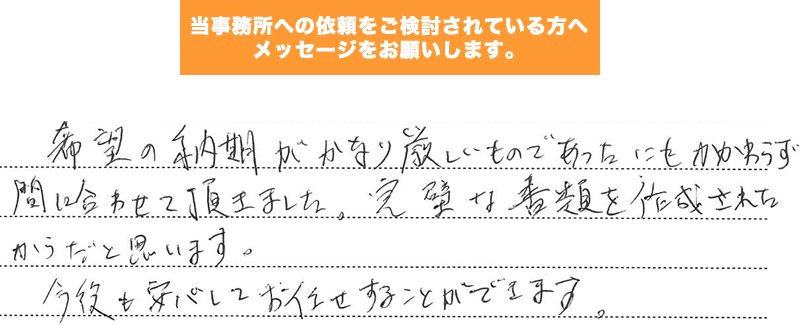 当事務所への依頼をご検討されている方へ
メッセージをお願いします。
希望の納期がかなり厳しいものであったにもかかわらず
間に合わせて頂きました。完璧な書類を作成された
からだと思います。
今後も安心してお任せすることができます。